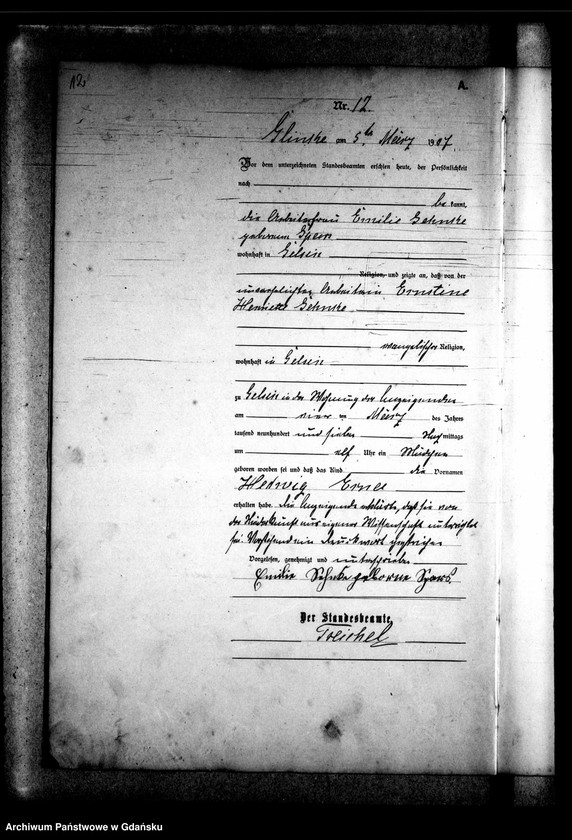 12.
A.
Nr. 12.
Glinke am 5ten März 1907.
Vor dem unterzeichneten Standesbeamten erschien heute, der Persönlichkeit
nach
be kannt,
die Arbeiterfrau Emilie
geborene
wohnhaft in Gelsin
Religion, und zeigte an, daß von der
unverehelichten Arbeiterin Ernstine
Henriette
evangelischer Religion,
wohnhaft in Gelsin
zu Gelsin in der Wohnung der Anzeigenden
am vier ten März des Jahres
tausend neunhundert und sieben mittags
um elf Uhr ein Mädchen
geboren worden sei und daß das Kind die Vornamen
Hedwig
erhalten habe. Die Anzeigende erklärte, daß sie von
der Niederkunft aus eigener Wissenschaft unterrichtet
sei. Vorstehend ein Druckwort gestrichen
Vorgelesen, genehmigt und unterschrieben
Emilie geborne
Der Standesbeamte.
Treichel
Archiwum Państwowe w Gdańsku